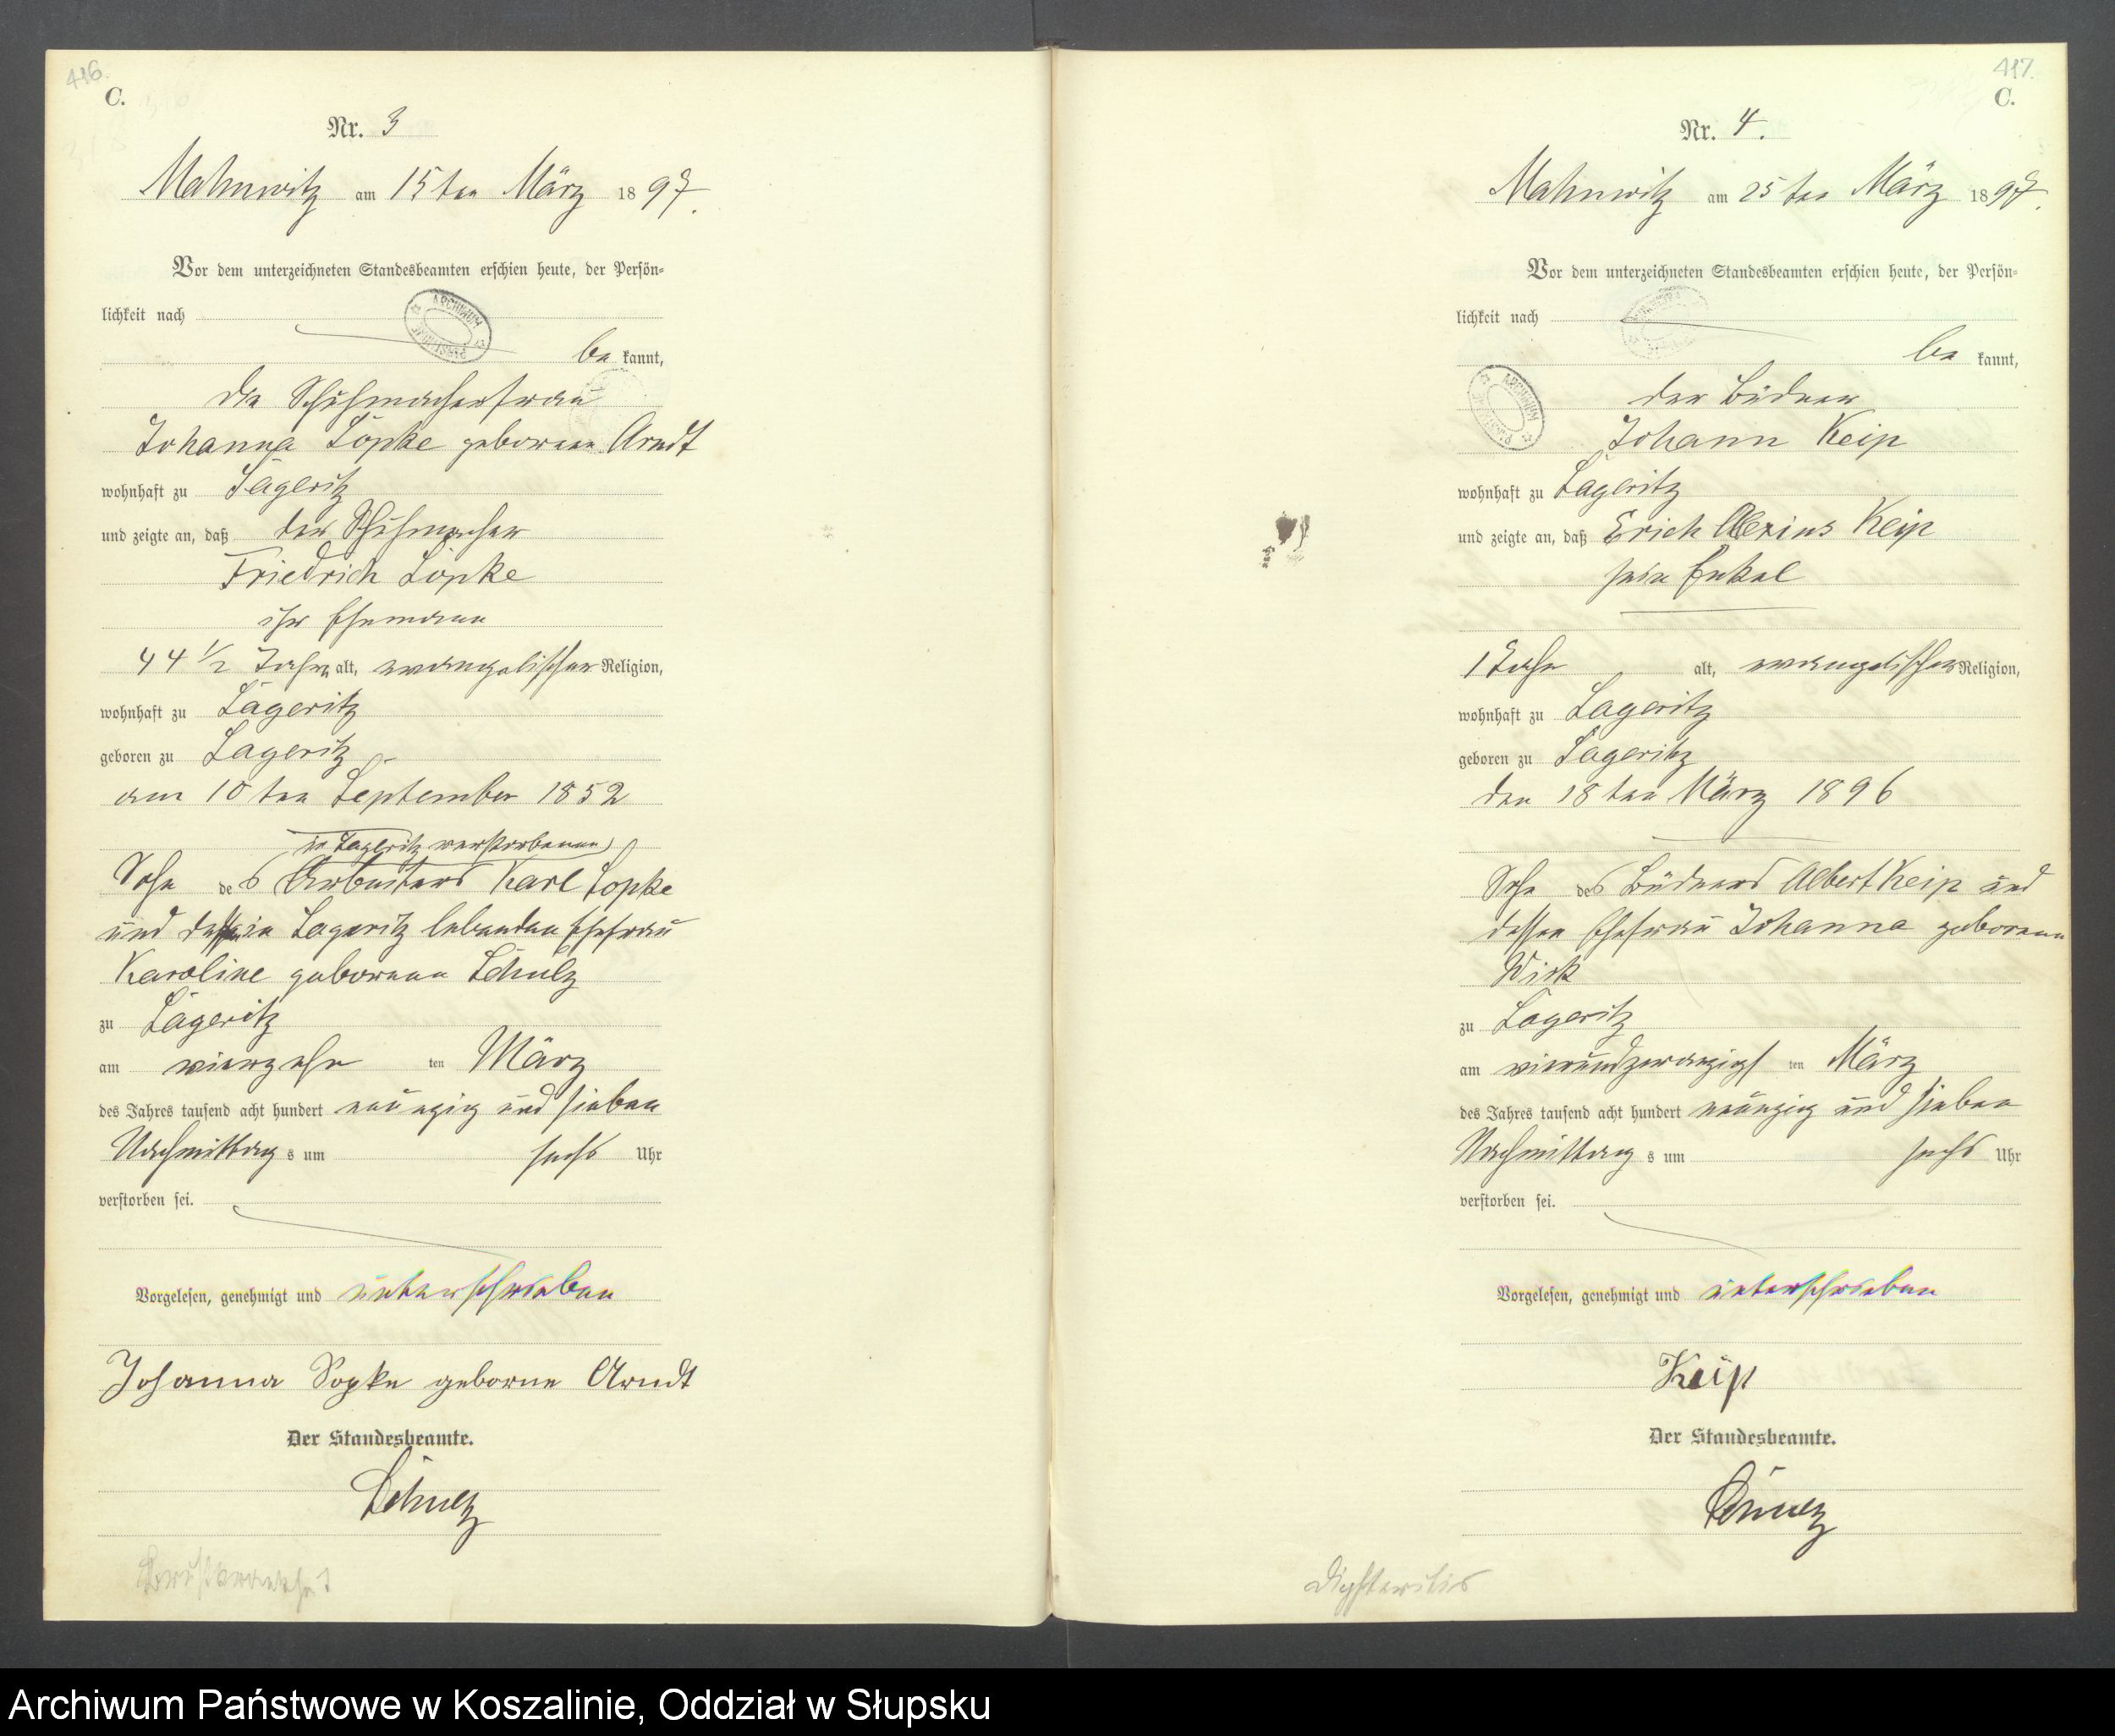 416.
C.
Nr. 3
Mahnwitz am 15ten März 1897.
Vor dem unterzeichneten Standesbeamten erschien heute, der Persön-
lichkeit nach
ARCHIWUM
be kannt,
die Schuhmacherfrau
Johanna Sopke geborene Arndt
wohnhaft zu Lageritz
und zeigte an, daß der Schuhmacher
Friedrich Sopke
ihr Ehemann
44 1/2 Jahre alt, evangelischer Religion,
wohnhaft zu Lageritz
geboren zu Lageritz
am 10ten September 1852
in Lageritz verstorbenen
Sohn des Arbeiters Karl Sopke
und dessen in Lageritz lebenden Ehefrau
Karoline geborene Schulz
zu Lageritz
am vierzehn ten März
des Jahres tausend acht hundert neunzig und sieben
Nachmittag s um sechs Uhr
verstorben sei.
Vorgelesen, genehmigt und unterschrieben
Johanna Sopke geborne Arndt
Der Standesbeamte.
Schulz
417.
C.
Nr. 4.
Mahnwitz am 25ten März 1897.
Vor dem unterzeichneten Standesbeamten erschien heute, der Persön-
lichkeit nach
be kannt,
ARCHIWUM
der Büdner
Johann Keip
wohnhaft zu Lageritz
und zeigte an, daß Erich Keip
sein Enkel
1 Jahr alt, evangelischer Religion,
wohnhaft zu Lageritz
geboren zu Lageritz
den 18ten März 1896
Sohn des Büdners Albert Keip und
dessen Ehefrau Johanna geborene
zu Lageritz
am vierundzwanzigs ten März
des Jahres tausend acht hundert neunzig und sieben
Nachmittag s um sechs Uhr
verstorben sei.
Vorgelesen, genehmigt und unterschrieben
Keip
Der Standesbeamte.
Schulz
Diphteritis
Archiwum Państwowe w Koszalinie, Oddział w Słupsku